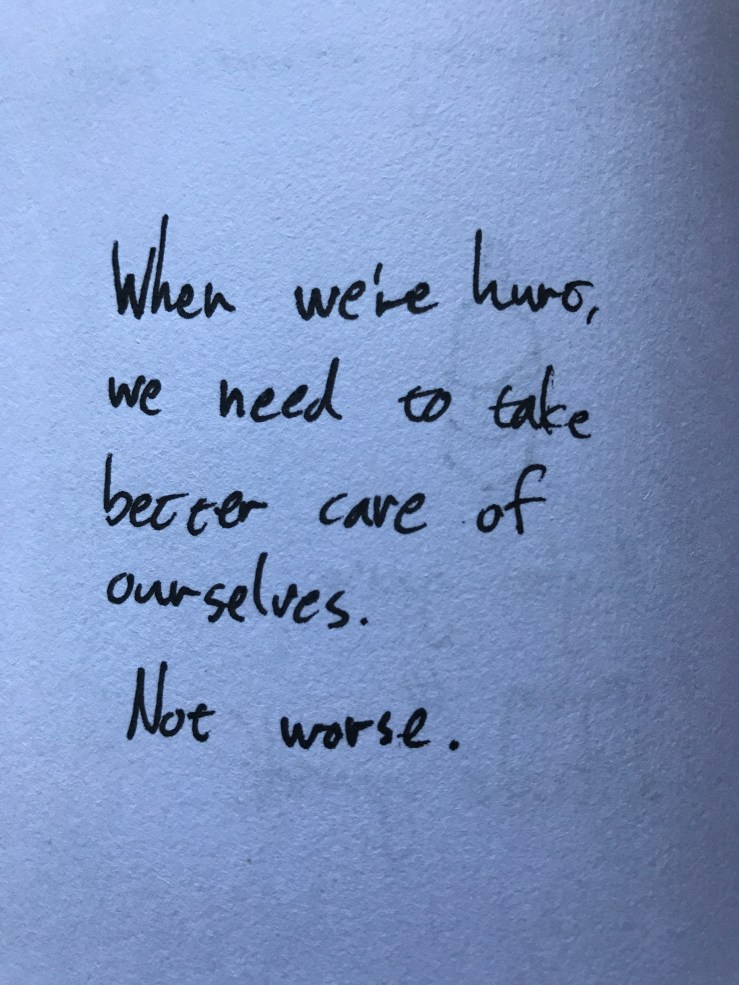 When we're hurt,
we need to take
better care of
ourselves.
Not worse.